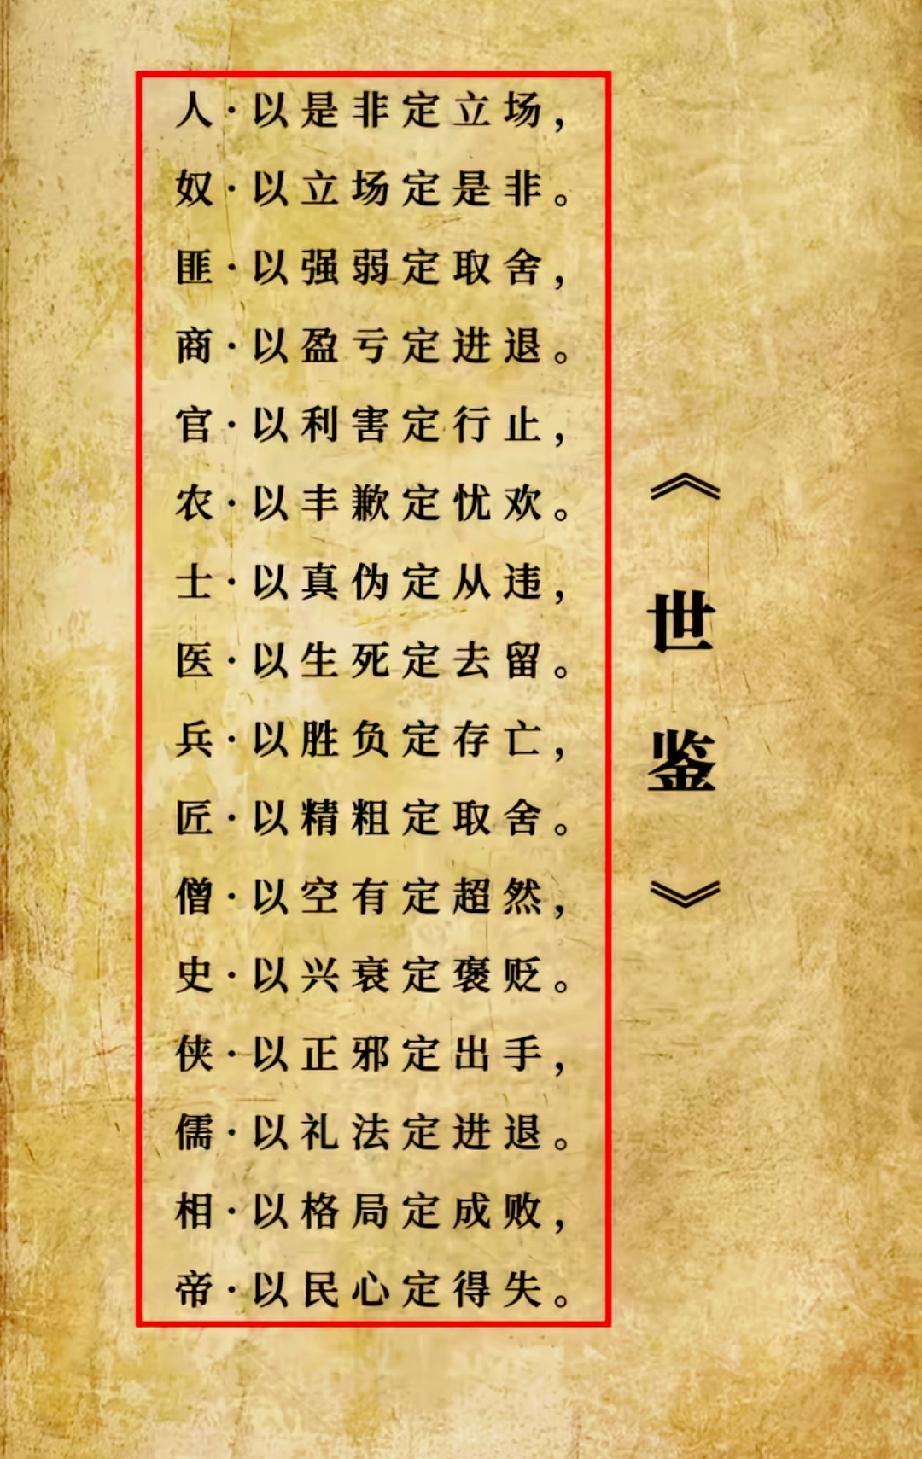 人·以是非定立场，
奴·以立场定是非。
匪·以强弱定取舍，
商·以盈亏定进退。
官·以利害定行止，
农·以丰歉定忧欢。
士·以真伪定从违，
医·以生死定去留。
兵·以胜负定存亡，
匠·以精粗定取舍。
僧·以空有定超然，
史·以兴衰定褒贬。
侠·以正邪定出手，
儒·以礼法定进退。
相·以格局定成败，
帝·以民心定得失。
《世鉴》